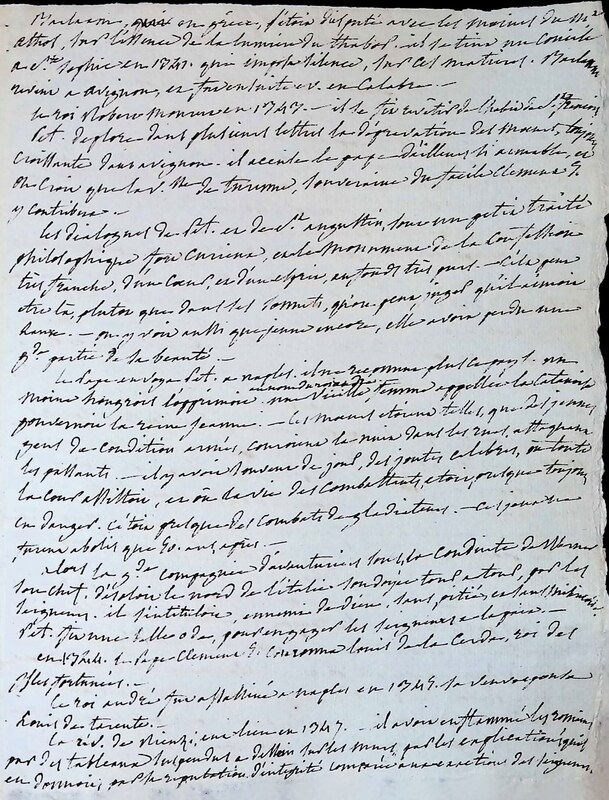 Barlaam, qui en grèce, s'étoit disputé avec les moines du M.
Athos, sur l'essence de la lumiere du thabor. il se tint un Concile
a Ste Sophie en 1341. qui imposa silence, sur ces matieres. Barlaam
revint a avignon, et fut ensuite ev. en Calabre.
Le roi Robert mourut en 1343. — il se fit revêtir de l'habit de St françois
Pet. deplore dans plusieurs lettres la dépravation des mœurs, toujours
croissante dans avignon. il accuse le pape d'ailleurs si aimable, et
on Croit que la v.sse de turenne, souveraine du facile Clement 6.
y contribua. —
Les dialogues de Pet. et de St augustin, sont un petit traité
philosophique fort curieux, et le Monument de la Confession
très franche, d'un Cœur, et d'un esprit, au fond très purs. — C'est la peut
être là, plutot que dans les Sonnets, qu'on peut juger qu'il aimoit
Laure. — on y voit aussi que jeune encore, elle avoit perdu une
gde partie de sa beauté. —
Le Pape envoya Pet. a naples. il ne reconnut plus ce pays. un
moine hongrois l'opprimoit au nom du roi andré une vieille femme appellée la Catanoise
gouvernoit la reine jeanne. — Les mœurs etoient telles, que des jeunes
gens de condition armés, couroient la nuit dans les rues, attaquant
les passants. — il y avoit souvent de jour, des joutes celebres, où toute
la cour assistoit, et où la vie des Combattants etoit presque toujours
en danger. C'etoit presque des Combats de gladiateurs. — Ces jeux ne
furent abolis que 60. ans après. —
alors la gde compagnie d'avanturiers sous la Conduite de Werner
son chef, désoloit le nord de l'italie. soudoyée tour a tour, par les
seigneurs. il s'intituloit, ennemi de dieu, sans pitié, et sans miséricorde.
Pet. fit une belle ode, pour engager les seigneurs a la paix. —
en 1344. le Pape Clement 6. Couronna louis de la Cerda, roi des
isles fortunées. —
Le roi andré fut assassiné a naples en 1345. sa veuve épousa
Louis de tarente. —
La rév. de Rienzi, eut lieu en 1347. — il avoit enflammé les romains
par des tableaux suspendus a dessein sur les murs, par les explications qu'il
en donnoit, par sa reputation d'intégrité comparée aux exactions des seigneurs.